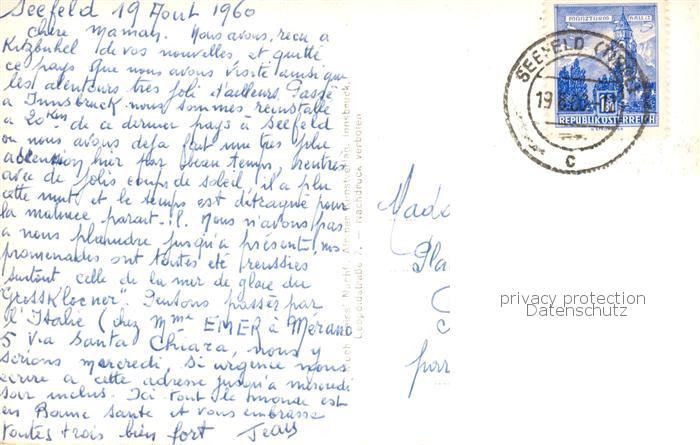 Seefeld 19 Aout 1960
Chère Maman. Nous avons reçu a
Kitzbuhel de vos nouvelles, et quitté
ce pays que nous avons visité ainsi que
les alentours très joli d'ailleurs. Passé
a Innsbruck nous sommes réinstallé
a 20 Km de ce dernier pays à Seefeld
ou nous avons déja fait une très jolie
ascension hier par beau temps, rentrés
avec de jolis coups de soleil, il a plu
cette nuit et le temps est détraqué pour
la matinée parait-il. Nous n'avons pas
a nous plaindre jusqu'a présent, nos
promenades ont toutes été réussies
surtout celle de la mer de glace du
"Grossklocner". Pensons passer par
l'Italie (chez Mme EMER à Mérano
5 Via Santa Chiara, nous y
serions mercredi, si urgence nous
écrire a cette adresse jusqu'a mercredi
soir inclus. Ici tout le monde est
en Bonne Santé et vous embrasse
toutes trois bien fort Jean
Leopoldstraße 7. - Nachdruck verboten
MÜNZTURM HALL i. T.
REPUBLIK ÖSTERREICH
SEEFELD (TIROL)
19.8.60
c
Mada
Pla
par
privacy protection
Datenschutz